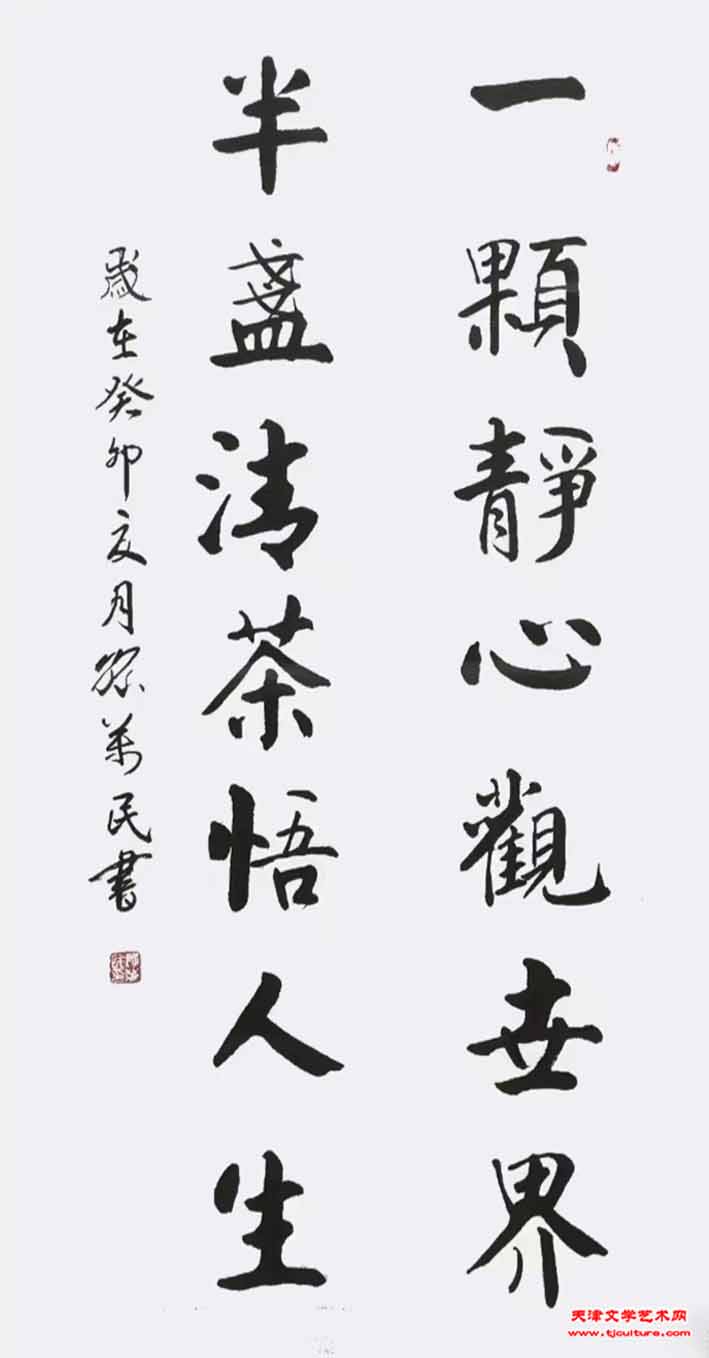 一顆靜心觀世界
半盞清茶悟人生
歲在癸卯亥月孫萬民書
天津文学艺术网
www.tjculture.com